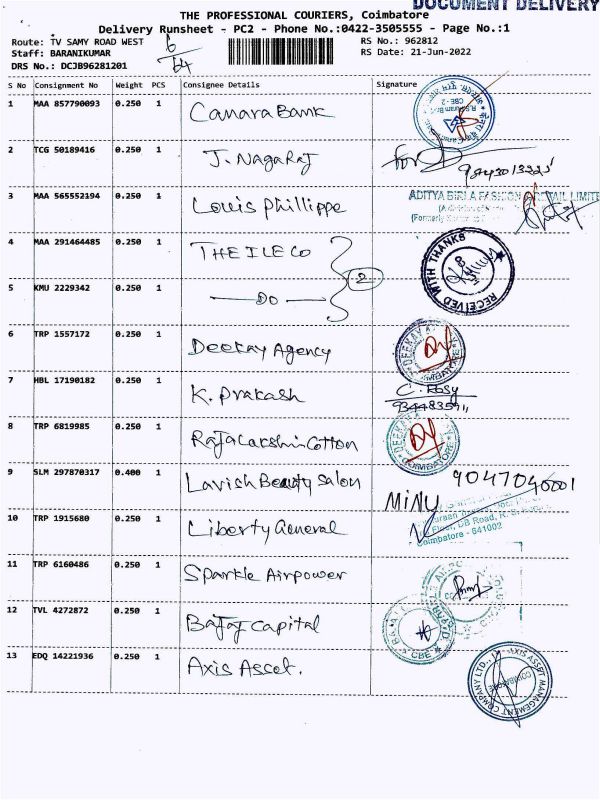 DOCUMENT DELIVERY
THE PROFESSIONAL COURIERS, Coimbatore
Delivery Runsheet - PC2 - Phone No.:0422-3505555 - Page No.:1
Route: TV SAMY ROAD WEST RS No.: 962812
Staff: BARANIKUMAR RS Date: 21-Jun-2022
DRS No.: DCJB96281201
S No Consignment No Weight PCS Consignee Details Signature
1 MAA 857790093 0.250 1 Canara Bank CBE-2
2 TCG 50189416 0.250 1 J. Nagaraj for
3 MAA 565552194 0.250 1 Louis Phillippe ADITYA BIRLA FASHION
(Formerly
4 MAA 291464485 0.250 1 THEILECO RECEIVED WITH THANKS
2
5 KMU 2229342 0.250 1 DO
6 TRP 1557172 0.250 1 Deekay Agency DEEKAY
7 HBL 17190182 0.250 1 K. Prakash C. Rosy
8 TRP 6819985 0.250 1 Rajalakshmi Cotton COIMBATORE
9 SLM 297870317 0.400 1 Lavish Beauty Salon 9047040001
MINU
10 TRP 1915680 0.250 1 Liberty General
Coimbatore - 641002
11 TRP 6160486 0.250 1 Sparkle Airpower
12 TVL 4272872 0.250 1 Bajaj Capital CBE
13 EDQ 14221936 0.250 1 Axis Asset. AXIS ASSET MANAGEMENT COMPANY LTD.